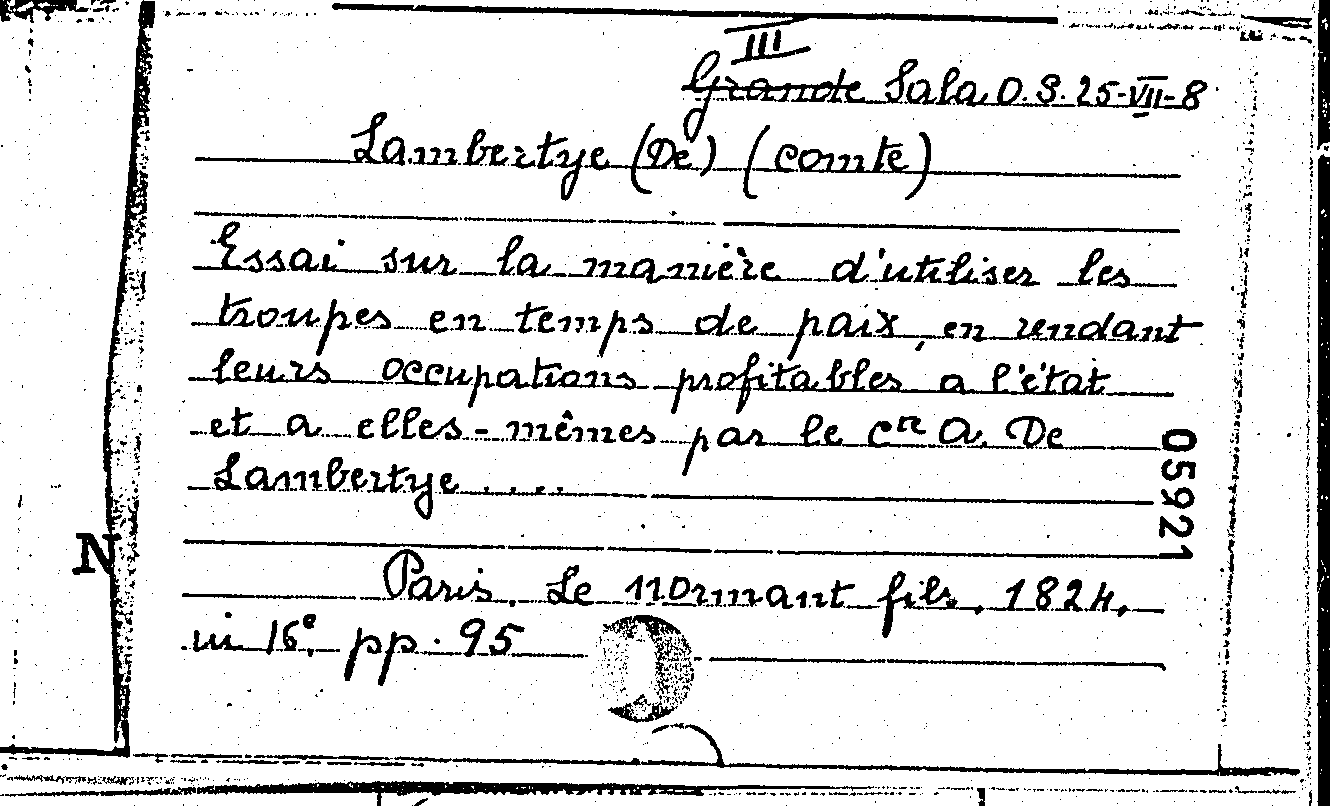 III
Grande Sala O.S. 25-VII-8
Lambertye (De) (comte)
Essai sur la manière d'utiliser les
troupes en temps de paix, en rendant
leurs occupations profitables a l'état
et a elles-mêmes par le cte A. De
Lambertye ....
05921
N
Paris. Le Normant fils. 1824.
in 16°. pp. 95